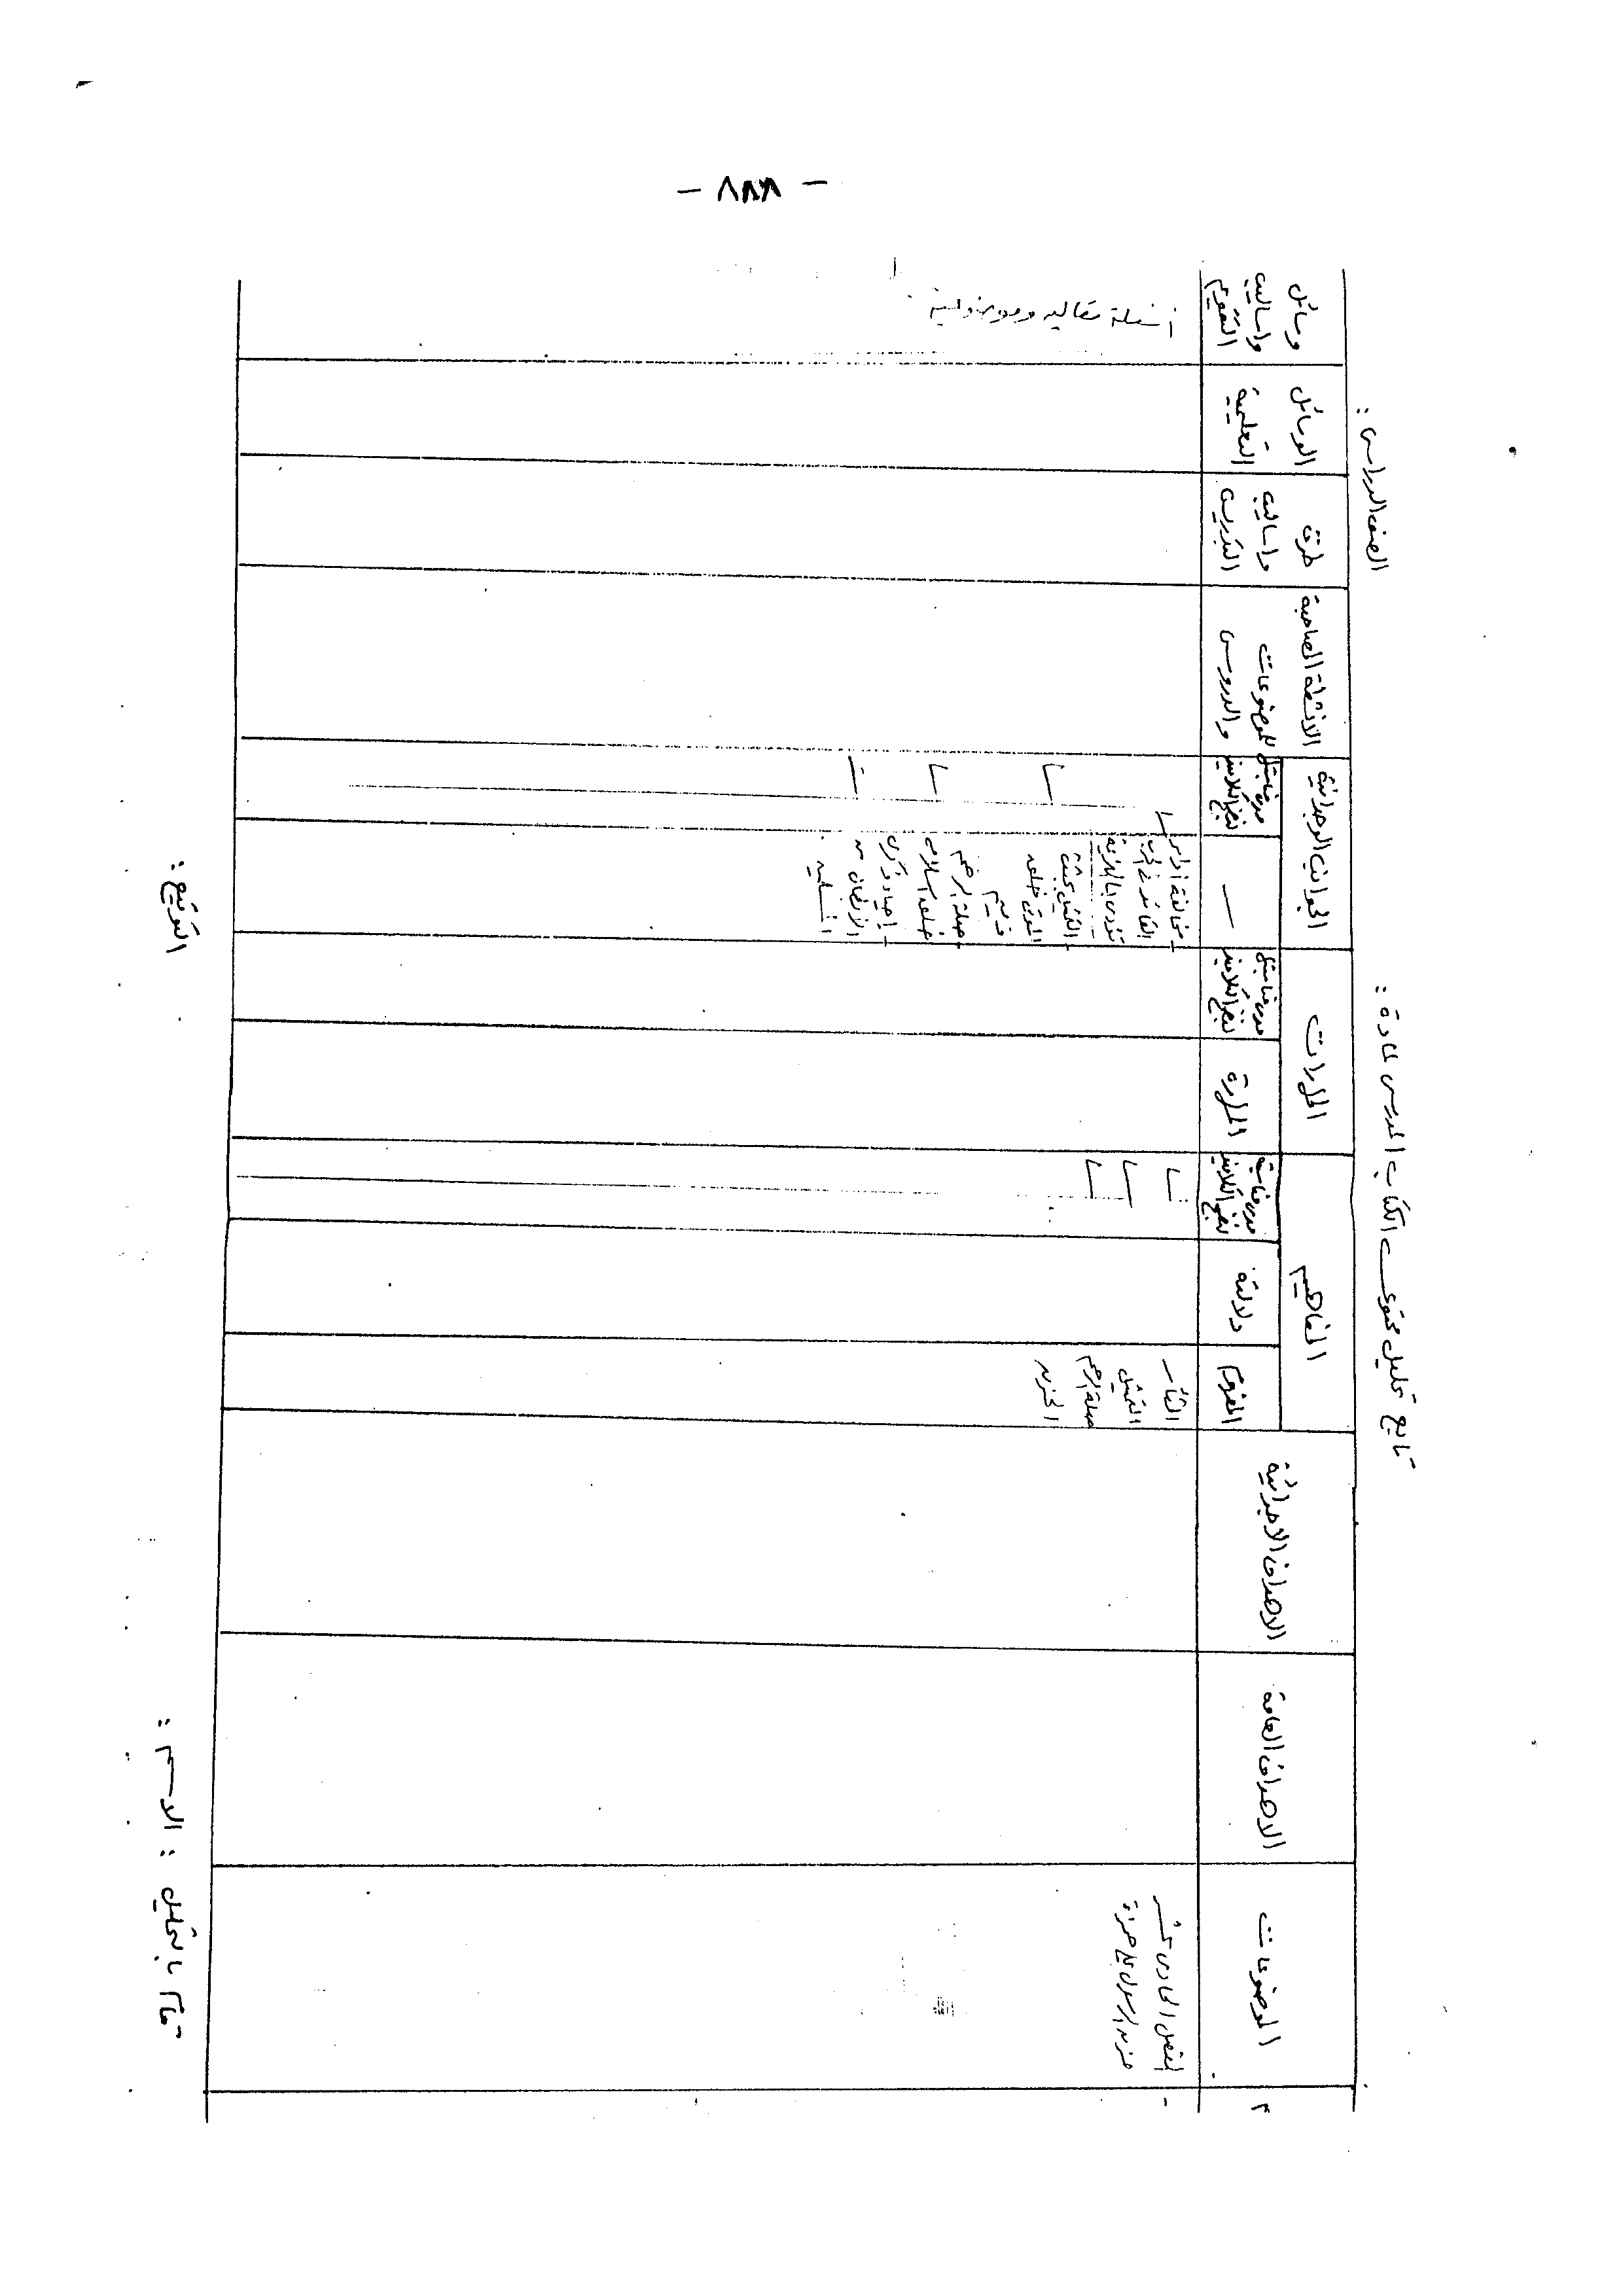 - ٨٨٨ -
تابع تحليل محتوى الكتاب المدرسى لمادة :
الصف الدراسى :
م
الموضوعات
الاهداف العامة
الاهداف الاجرائية
المفاهيم
المفهوم
دلالته
مدى مناسبته لنضج التلاميذ
المهارات
المهارة
مدى مناسبتها لنضج التلاميذ
الجوانب الوجدانية
مدى مناسبتها لنضج التلاميذ
الانشطة المصاحبة
للموضوعات
والدروس
طرق
واساليب
التدريس
الوسائل
التعليمية
وسائل
واساليب
التقويم
الفصل الحادى عشر
حزن الرسول على حمزة
الثأر
التمثيل
صلة الرحم
الحزن
- مخالفة اوامر
القائد فى الحرب
تؤدى بالهزيمة
- التمثيل بجثث
الموتى خلق
ذميم
- صلة الرحم
خلق اسلامى
المسلمين
أسئلة مقالية وموضوعية
قام بالتحليل : الاسم :
التوقيع :